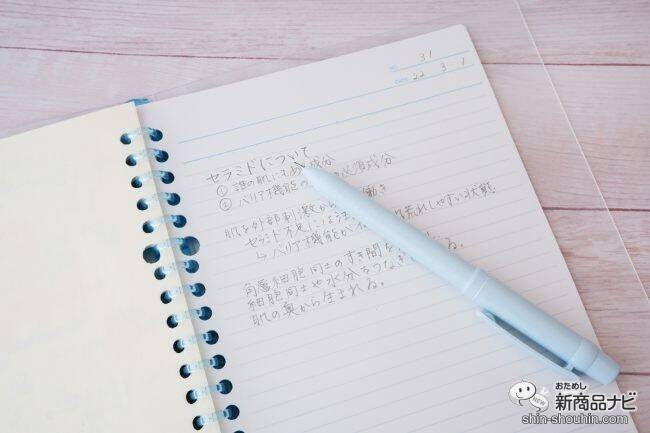 No. 31
DATE 22 3 1
セラミドについて
① 誰の肌にもある成分
② バリア機能の 必須成分
肌を外部刺激から 働き
セラミド不足になると 肌荒れしやすい状態
↳ バリア機能が
角層細胞同士のすき間を る。
細胞同士や水分をつなぎ
肌の奥から生まれる。
おためし
新商品ナビ
NEW
shin-shouhin.com